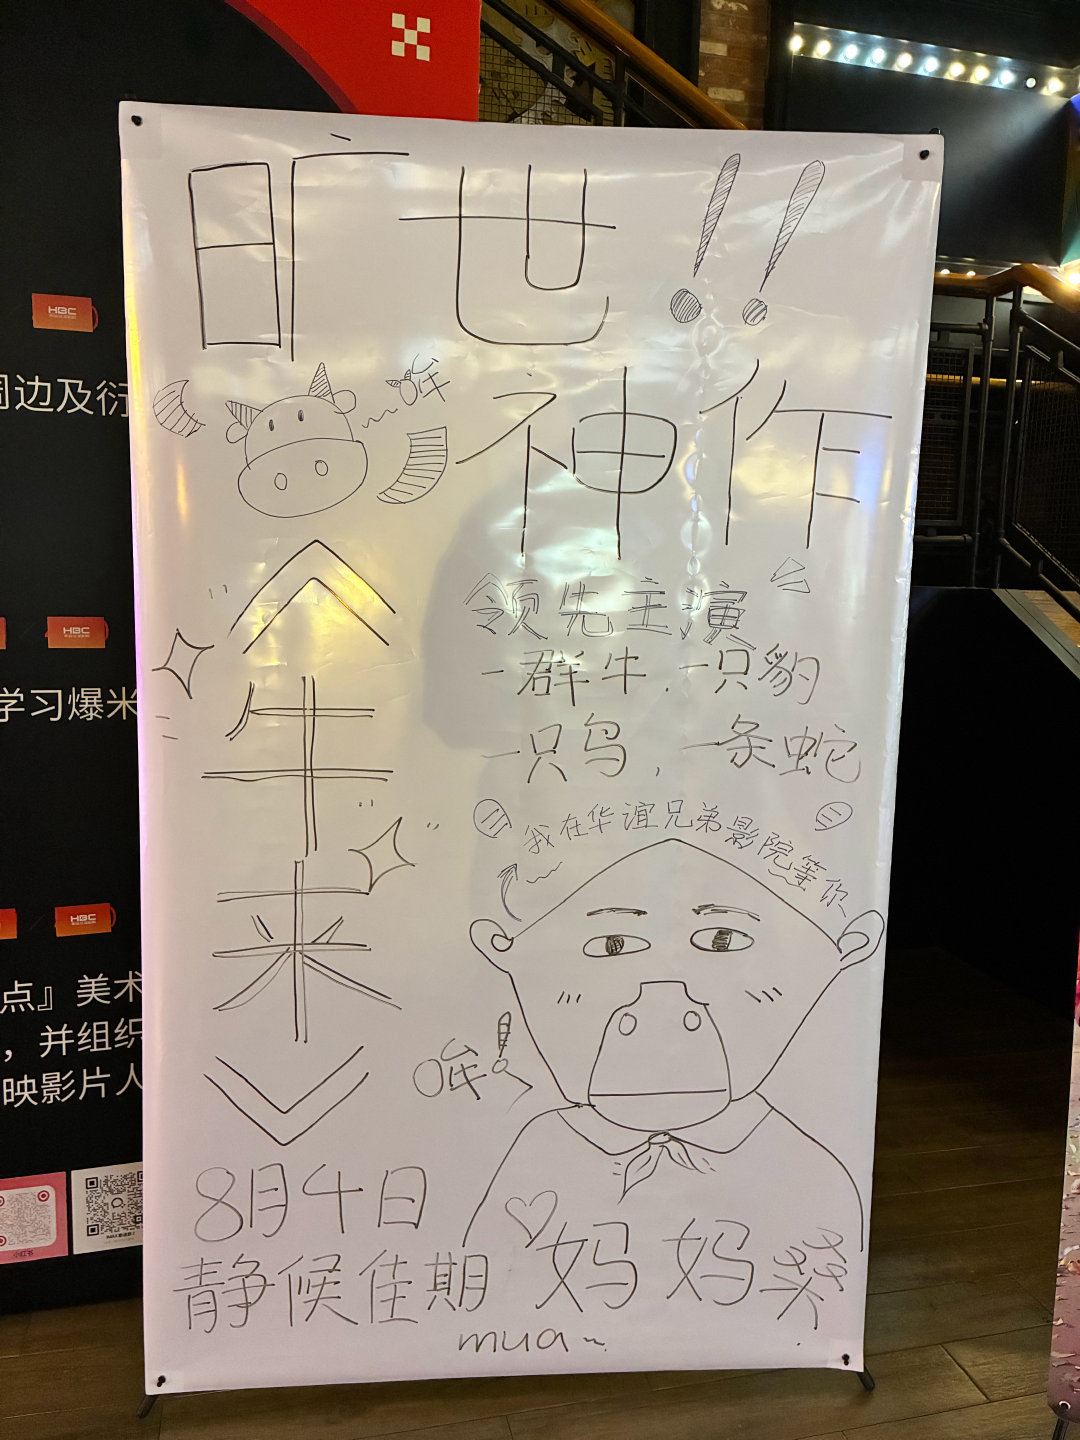 旷世!!
哞
神作
《牛来》
领先主演
一群牛,一只豹
一只鸟,一条蛇
我在华谊兄弟影院等你
哞!
8月4日
静候佳期
妈妈
mua~
HBC
周边及衍
HBC
学习爆米
HBC
点』美术
，并组织
映影片人